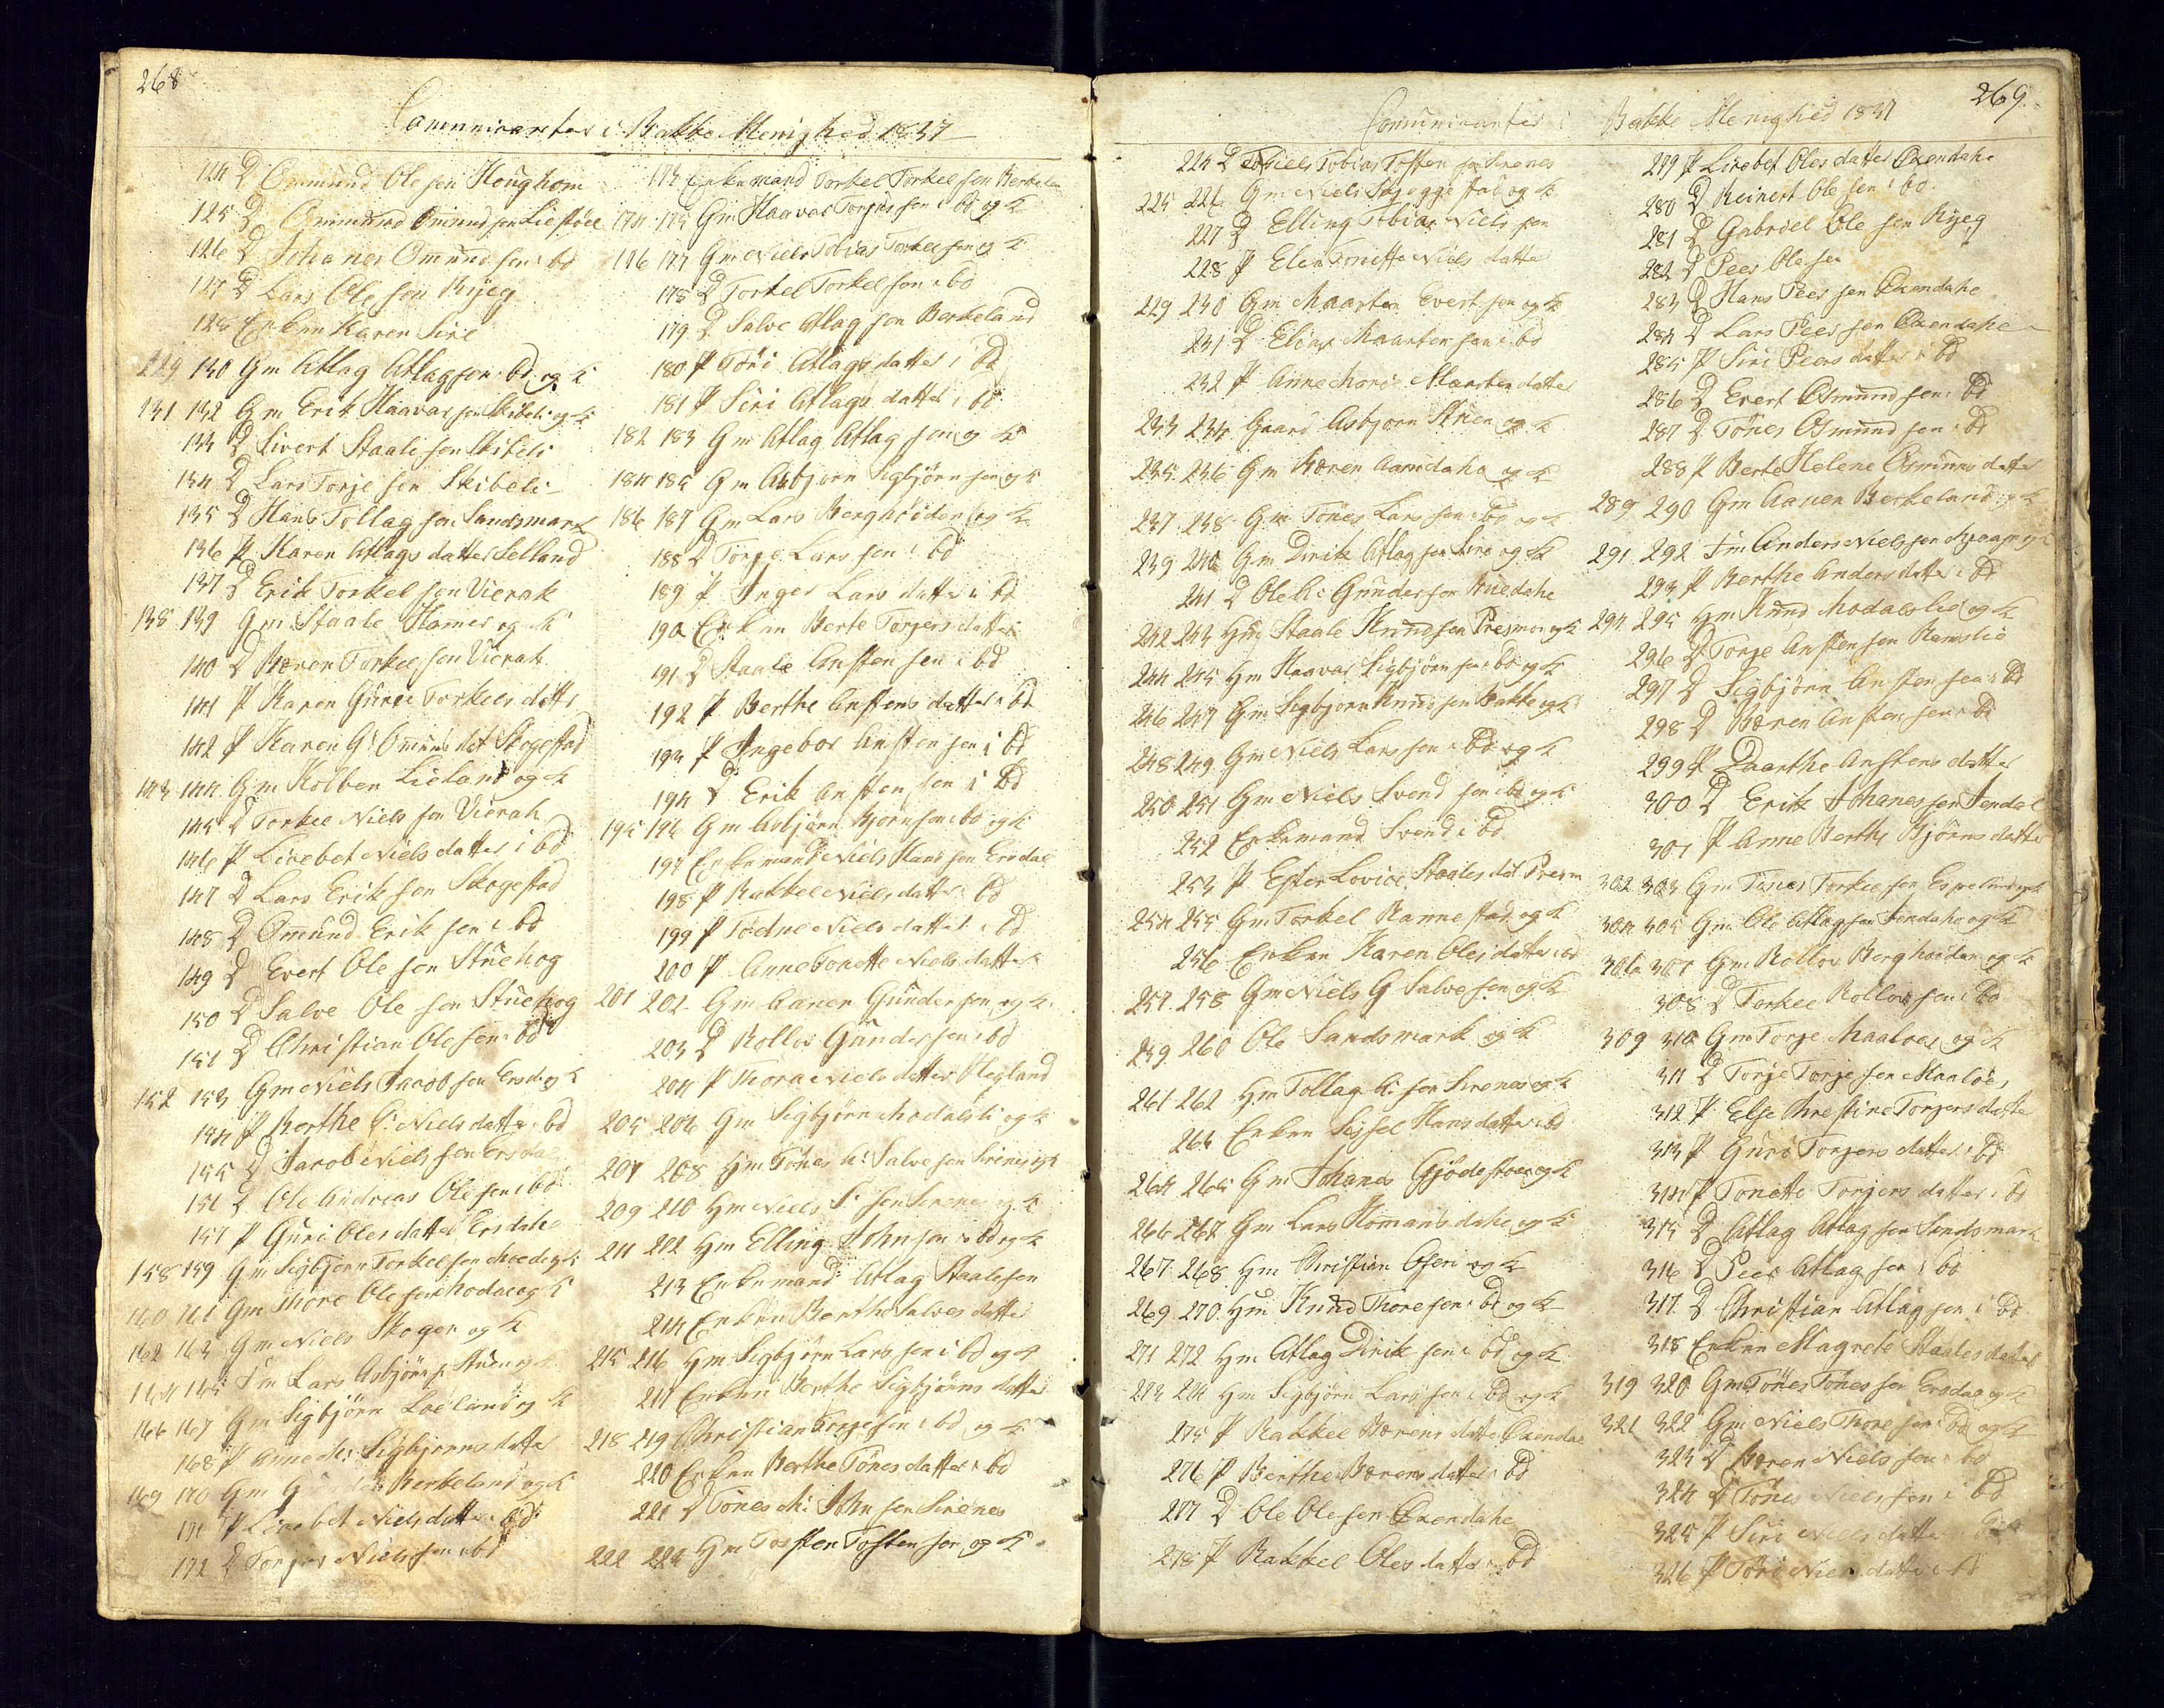 268
Communicanter i Bakke Menighed 1837
124 D Ommund Ole sen Houghom
125 D Ommund Omund sen Liestöel
126 D Johanes Omund sen i bd
127 D Lars Ole sen Ryeg
128 Enken Karen Sire
129 130 Gm Atlag Atlag sen i bd og K
131 132 Gm Erik Haavar sen Skibeli og K
133 D Sivert Staale sen Skibeli
134 D Lars Torje sen Skibeli
135 D Hans Tollag sen Sandsmark
136 P Karen Atlags datter Selland
137 D Erik Torkel sen Vierak
138 139 Gm Staale Hamer og K
140 D Bæren Torkel sen Vierak
141 P Karen Gurie Torkels dattr
142 P Karen G: Omuns dat Skogestad
143 144 Gm Kolben Lieland og K
145 D Torkel Niels sen Vierak
146 P Lisebet Niels datter i bd
147 D Lars Erik sen Skogestad
148 D Omund Erik sen i bd
149 D Evert Ole sen Stuehog
150 D Salve Ole sen Stuehog
151 D Christian Ole sen i bd
152 153 Gm Niels Jacob sen Ersd og K
154 P Berthe C: Niels datter i bd
155 D Jacob Niels sen Ersdal
156 D Ole Andreas Ole sen i bd
157 P Guri Oles datter Ersdahe
158 159 Gm Sigbjorn Torkel sen Moed og K
160 161 Gm Thore Ole sen Modal og K
162 163 Gm Niels Skogen og K
164 165 Fm Lars Asbjörn s Stuen og K
166 167 Gm Sigbjörn Loeland og K
168 P Anne M: Sigbjorns datter
169 170 Gm Gunder Berkeland og K
171 P Lisebet Niels datter i bd
172 D Torjer Niels sen i bd
173 Enkemand Torkel Torkel sen Berkela
174 175 Gm Haavar Torjus sen i bd og K
176 177 Gm Niels Tobias Torkel sen og K
178 D Torkel Torkel sen i bd
179 D Salve Atlag sen Berkeland
180 P Töri Atlags datter i bd
181 P Siri Atlags datter i bd
182 183 Gm Atlag Atlag sen og K
184 185 Gm Asbjorn Sigbjörn sen og K
186 187 Gm Lars Berghöiden og K
188 D Torje Lars sen i bd
189 P Inger Lars datter i bd
190 Enken Berte Torjers datter
191 D Staale Ansten sen i bd
192 P Berthe Anstens datter i bd
193 P Ingebor Ansten sen i bd
194 D Erik Ansten sen i bd
195 196 Gm Asbjörn Bjorn sen i bd og K
197 Enkemand Niels Hans sen Ersdal
198 P Rakkel Niels datter i bd
199 P Tödne Niels datter i bd
200 P Anne Tonette Niels datter
201 202 Gm Aanen Gunder sen og K
203 D Rollof Gunder sen i bd
204 P Thora Niels datter Hegland
205 206 Gm Sigbjörn Modalsli og K
207 208 Hm Tönes h: Salve sen Sirnes og K
209 210 Hm Niels S: sen Sirnes og K
211 212 Hm Elling John sen i bd og K
213 Enkemand Atlag Staale sen
214 Enken Berthe Salves datter
215 216 Hm Sigbjörn Lars sen i bd og K
217 Enken Berthe Sigbjörns datter
218 219 Christian Torje sen i bd og K
220 Enken Berthe Tönes datter i bd
221 D Tönes M: John sen Sirenes
222 223 Hm Tosten Tosten sen og K
269.
Comunicanter i Bakke Menighed 1837
224 D Tobiels Tobias Tosten sen Sirenes
225 226 Gm Niels Skjeggestad og K
227 D Elling Tobias Niels sen
228 P Elen Tonette Niels datter
229 230 Gm Maarten Evert sen og K
231 D Elias Maarten sen i bd
232 P Anne Mari Maartens datter
233 234 Gaard Asbjorn Stuen og K
235 236 Gm Bæren Aamdahe og K
237 238 Gm Tönes Lars sen i bd og K
239 240 Gm Dirik Atlag sen Sire og K
241 D Ole A: Gunder sen Stuedahe
242 243 Hm Staale Knud sen Presmon og K
244 245 Hm Haavar Sigbjörn sen i bd og K
246 247 Gm Sigbjorn Knud sen Bakke og K
248 249 Gm Niels Lars sen i bd og K
250 251 Gm Niels Svend sen i bd og K
252 Enkemand Svend i bd
253 P Ester Lovise Staales dat Presm
254 255 Gm Torkel Rannestad og K
256 Enken Karen Oles datter i bd
257 258 Gm Niels G Salve sen og K
259 260 Ole Sandsmark og K
261 262 Hm Tollag A: sen Sirenes og K
263 Enken Sissel Hans datter i bd
264 265 Gm Johanes Gjödestöel og K
266 267 Gm Lars Homansdahe og K
267 268 Hm Christian Osen og K
269 270 Hm Knud Thore sen i bd og K
271 272 Hm Atlag Dirik sen i bd og K
273 274 Hm Sigbjörn Lars sen i bd og K
275 P Rakkel Bærens datter Oxendal
276 P Berthe Bærens datter i bd
277 D Ole Ole sen Oxendahe
278 P Rakkel Oles datter i bd
279 P Lisebet Oles datter Oxendahe
280 D Reinert Ole sen i bd
281 D Gabriel Ole sen Ryeg
282 D Peer Ole sen
283 D Hans Peer sen Oxendahe
284 D Lars Peer sen Oxendahe
285 P Siri Peers datter i bd
286 D Evert Osmund sen i bd
287 D Tönes Osmund sen i bd
288 P Berte Helene Osmuns datter
289 290 Gm Aanen Berkeland og K
291 292 Fm Anders Niels sen og K
293 P Berthe Anders datter i bd
294 295 Hm Knud Modalslid og K
296 D Torje Ansten sen Ramslie
297 D Sigbjörn Ansten sen i bd
298 D Bæren Ansten sen i bd
299 P Daarthe Anstens datter
300 D Erik Johanes sen Jendal
301 P Anne Berthe Björns datter
302 303 Gm Tönes Torkel sen Espeland og K
304 305 Gm Ole Atlag sen Jendahe og K
306 307 Gm Rollov Berghöiden og K
308 D Torkel Rollov sen i bd
309 310 Gm Torje Maaloes og K
311 D Torje Torje sen Maaloes
312 P Else Cristine Torjers datter
313 P Guri Torjers datter i bd
314 P Tonette Torjers datter i bd
315 D Atlag Atlag sen Sandsmark
316 D Peer Atlag sen i bd
317 D Christian Atlag sen i bd
318 Enken Magrete Staales datter
319 320 Gm Tönes Tönes sen Ersdal og K
321 322 Gm Niels Thore sen i bd og K
323 D Bæren Niels sen i bd
324 D Tönes Niels sen i bd
325 P Siri Niels datter
326 P Töri Niels datter i bd